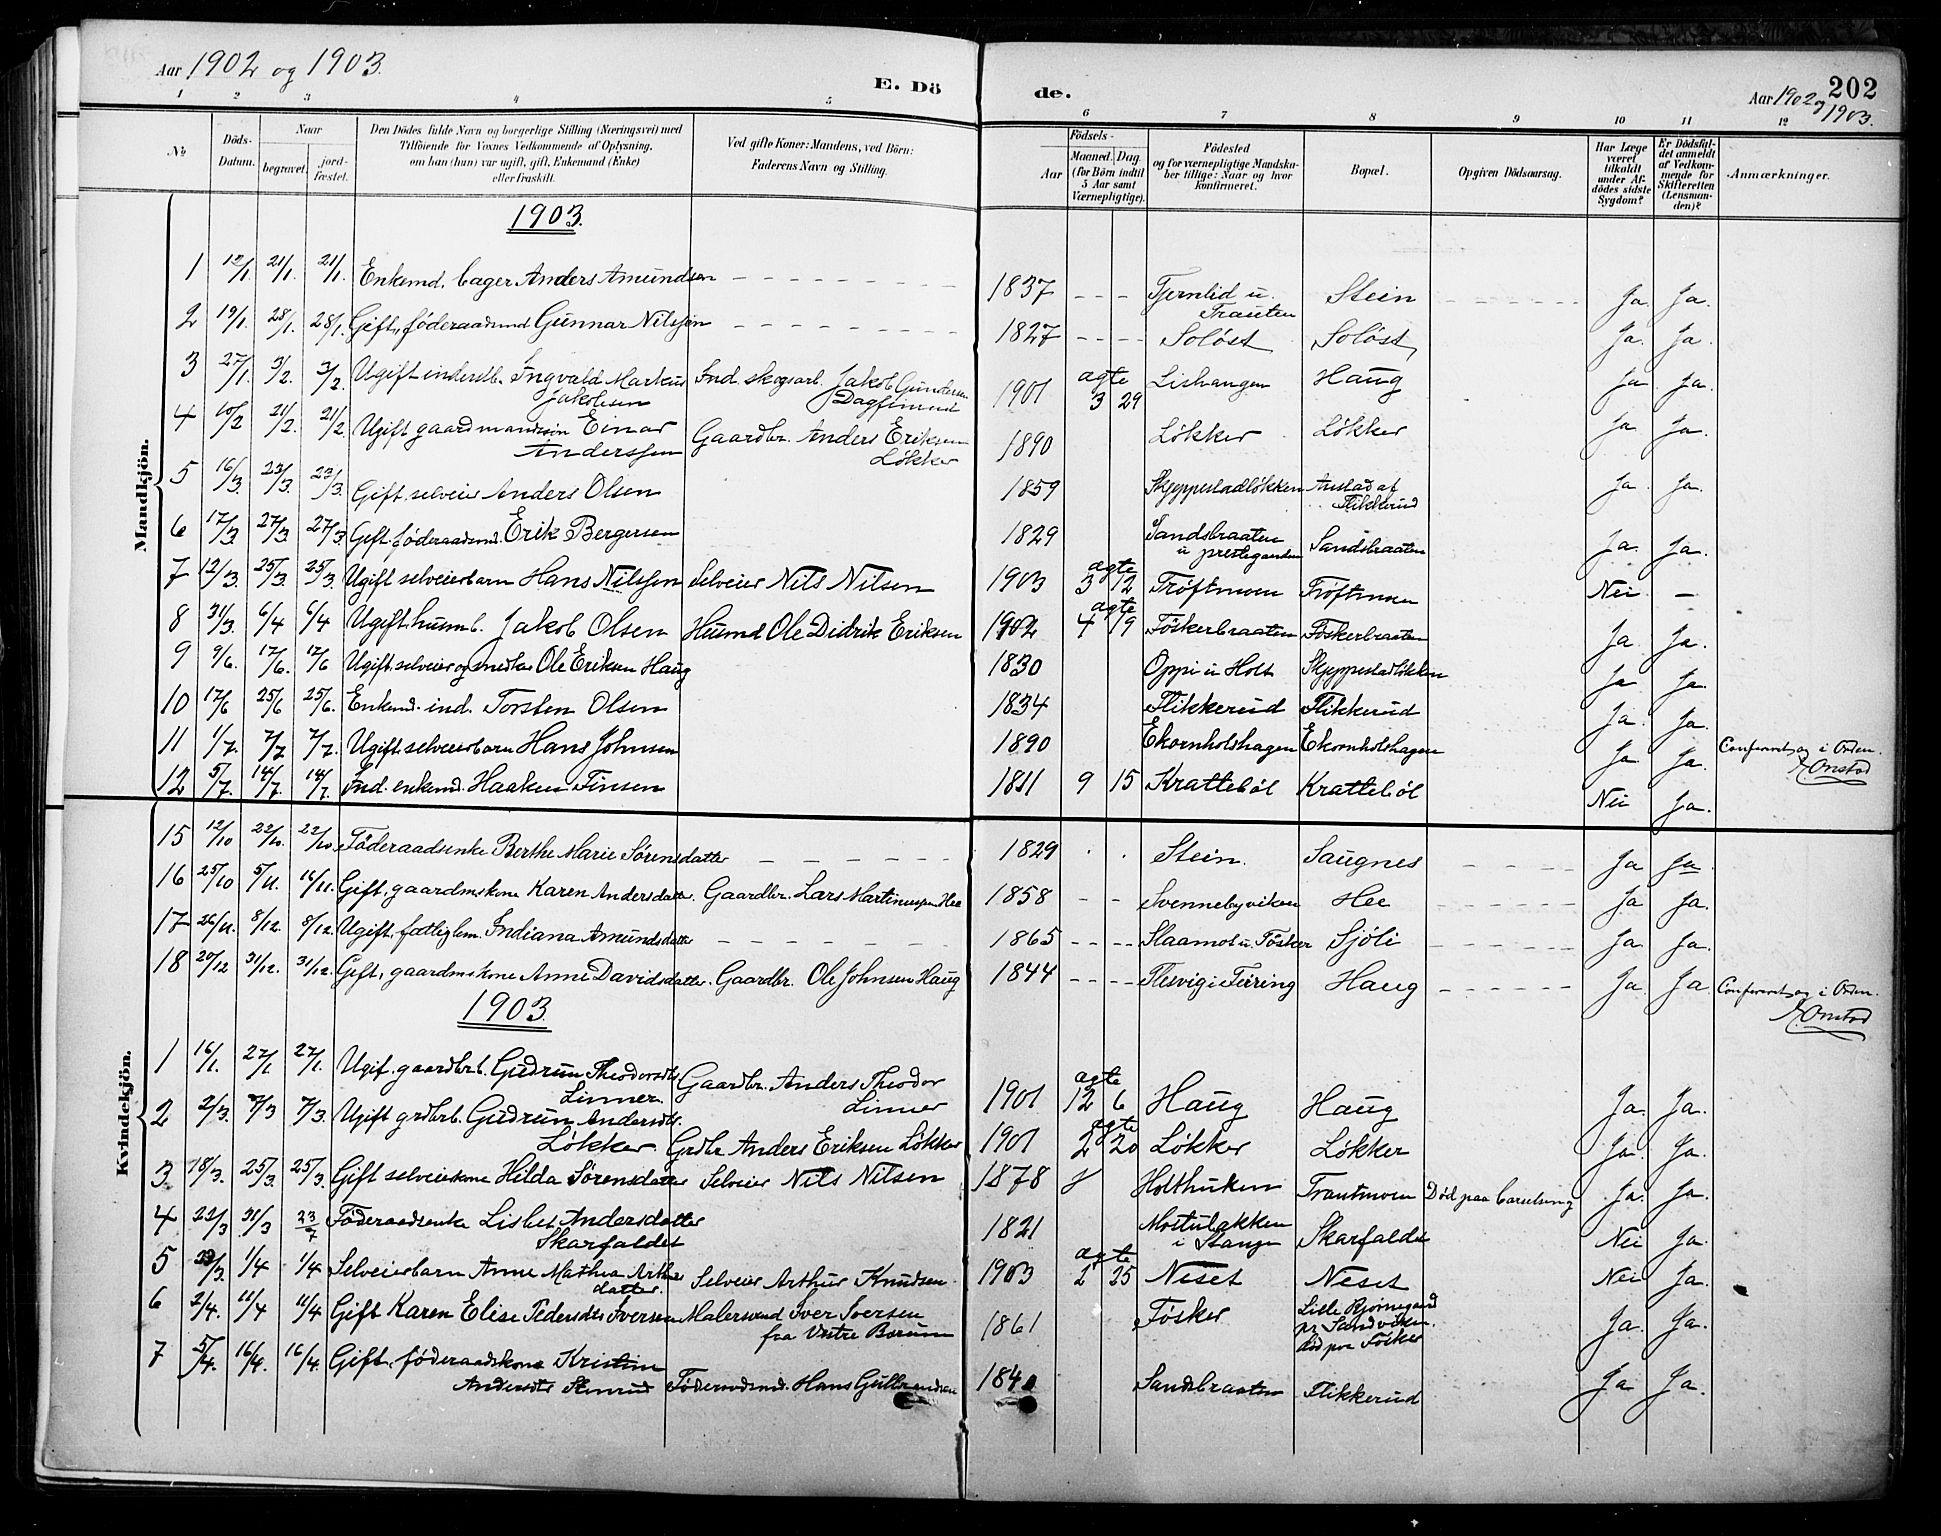 Aar 1902 og 1903.
E. Dö de.
Aar 1902 og 1903.
202
1 2 3 4 5 6 7 8 9 10 11 12
No
Döds-Datum.
Naar
begravet.
jord-fæstet.
Den Dödes fulde Navn og borgerlige Stilling (Næringsvei) med
Tilföiende for Voxnes Vedkommende af Oplysning,
om han (hun) var ugift, gift, Enkemand (Enke)
eller fraskilt.
Ved gifte Koner: Mandens, ved Börn:
Faderens Navn og Stilling.
Födsels-
Aar
Maaned. Dag.
(for Börn indtil
5 Aar samt
Værnepligtige).
Födested
og for værnepligtige Mandska-
ber tillige: Naar og hvor
konfirmeret.
Bopæl.
Opgiven Dödsaarsag.
Har Læge
været
tilkaldt
under Af-
dödes sidste
Sygdom?
Er Dödsfal-
det anmeldt
af Vedkom-
mende for
Skifteretten
(Lensman-
den)?
Anmærkninger.
Mandkjön.
1903.
1 12/1. 21/1. 21/1. Enkemd. bager Anders Amundsen 1837 Tjernlid u. Trauten Stein Ja. Ja.
2 19/1. 28/1. 28/1. Gift, föderaadsmd Gunnar Nilssen 1827 Soløst Soløst Ja. Ja.
3 27/1. 3/2. 3/2. Ugift inderstb. Ingvald Markus Jakobsen Ind. skogsarb. Jakob Gundersen 1901 agte 3 29 Lishaugen Haug Ja. Ja.
4 10/2 21/2. 21/2 Ugift gaardmandssøn Einar Anderssen Gaardbr. Anders Eriksen Løkker 1890 Løkker Løkker Ja. Ja.
5 16/3. 23/3. 23/3. Gift, selveier Anders Olsen 1859 Skjeppestadløkken Flikkerud Ja. Ja.
6 17/3 27/3. 27/3. Gift. föderaadsmd. Erik Bergersen 1829 Sandsbraaten u prestegaarden Sandsbraaten Ja. Ja.
7 12/3. 25/3. 25/3. Ugift selveierbarn Hans Nilssen Selveier Nils Nilsen 1903 agte 3 12 Trøftmoen Trøftmoen Nei —
8 31/3. 6/4 6/4 Ugift, husmb. Jakob Olsen Husmd Ole Didrik Eriksen 1902 agte 4 19 Föskerbraaten Föskerbraaten Ja. Ja.
9 9/6. 17/6. 17/6 Ugift, selveier og snedker Ole Eriksen Haug 1830 Oppi u Holt Skjeppestadløkken Ja Ja.
10 17/6 25/6 25/6. Enkemd. ind. Torsten Olsen 1834 Flikkerud Flikkerud Ja. Ja.
11 1/7. 7/7 7/7. Ugift selveierbarn Hans Johnsen 1890 Ekornholshagen Ekornholshagen Ja Ja. Confereret og i Orden.
12 5/7. 14/7. 14/7. Ind. enkemd. Haaken Finsen 1811 9 15 Krattebøl Krattebøl Nei Ja. Onstad
Kvindekjön.
15 12/10 22/10. 22/10. Föderaadsenke Berthe Marie Sørensdatter 1829 Stein. Saugnes Ja Ja
16 25/10 5/11. 16/11. Gift, gaardmskone Karen Andersdatter. Gaardbr. Lars Martinussen Hee 1858 Svennebyviken Hee Ja Ja.
17 26/11. 8/12. 8/12. Ugift, fattiglem. Indiana Amundsdatter 1865 Slaamot u. Føsker Sjöli Ja Ja.
18 20/12 31/12. 31/12. Gift, gaardmskone Anne Davidsdatter. Gaardbr. Ole Johnsen Haug 1844 Flesvig i Feiring Haug Ja Ja Confereret og i Orden.
Onstad
1903.
1 16/1. 27/1 27/1. Ugif. gaardbrb. Gudrun Theodorsdtr Linner. Gaardbr. Anders Theodor Linner 1901 agte 12 6 Haug Haug Ja. Ja.
2 2/3. 7/3 7/3 Ugift grdbrb. Gudrun Andersdtr. Løkker Grdbr Anders Eriksen Løkker 1901 agte 2 20 Løkker Løkker Ja. Ja.
3 18/3. 25/3. 25/3 Gift selveierkone Hilda Sørensdatter Selveier Nils Nilsen 1878 Holthuken Trautmoen Död paa barselseng Ja. Ja.
4 22/3 31/3 23/7 Föderaadsenke Lisbet Andersdatter Skarfaldet 1821 i Stange Skarfaldet Nei Ja.
5 1/4 1/4 Selveierbarn Anne Mathea Arthur datter. Selveier Arthur Knudsen. 1903 agte 2 25 Neset Neset Nei Ja.
6 2/4. 11/4 11/4 Gift Karen Elise Pedersdtr Iversen Malersvend Iver Iversen fra Vestre Bærum 1861 Føsker Lille Bjørnegaard pr Sandviken. död paa Føsker Ja. Ja.
7 5/4. 16/4. 16/4. Gift, föderaadskone Kristine Andersdtr Stenrud Föderaadsmd. Hans Gulbrandsen 1840 Sandsbraaten Flikkerud Ja Ja.